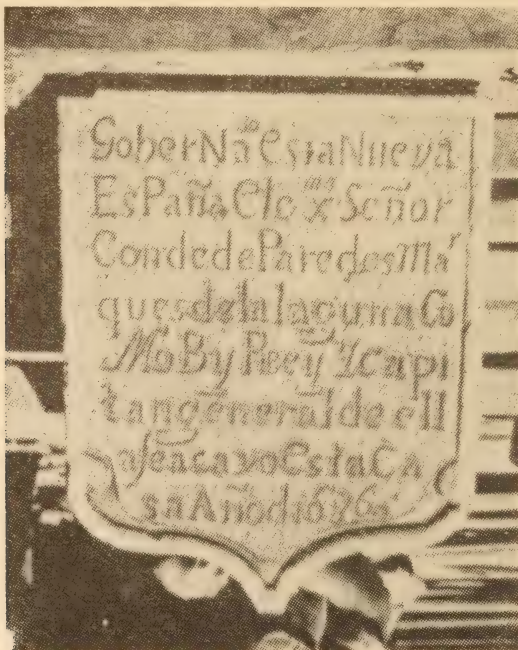 GoberNaᵈᵒ EstaNueva
EsPaña Elc ᵐᵒ x Señor
Conde de Paredes Ma
ques de la laguna Co
Mo By Rey Y Capi
tan general de ell
a seacavo Esta Ca
sa Año d 1686